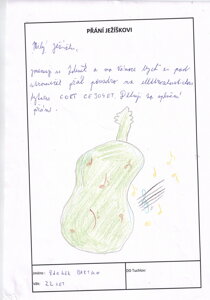 PŘÁNÍ JEŽÍŠKOVI
Milý Ježíšku,
jmenuji se Zdeněk a na Vánoce bych si pod
stromeček přál pouzdro na elektroakustickou
kytaru CORT Děkuji za splnění
přání.
Jméno:
Věk: 22 let
DD Tuchlov